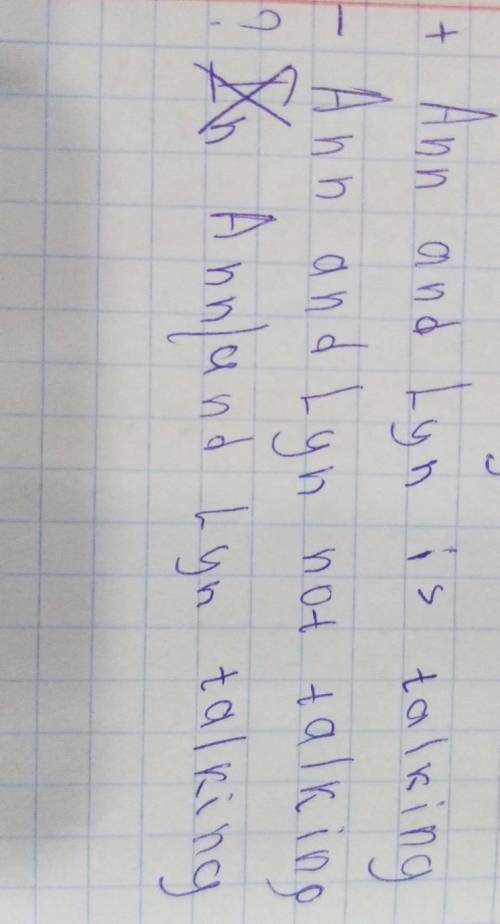 + Ann and Lyn is talking
- Ann and Lyn not talking
? Ann/and Lyn talking